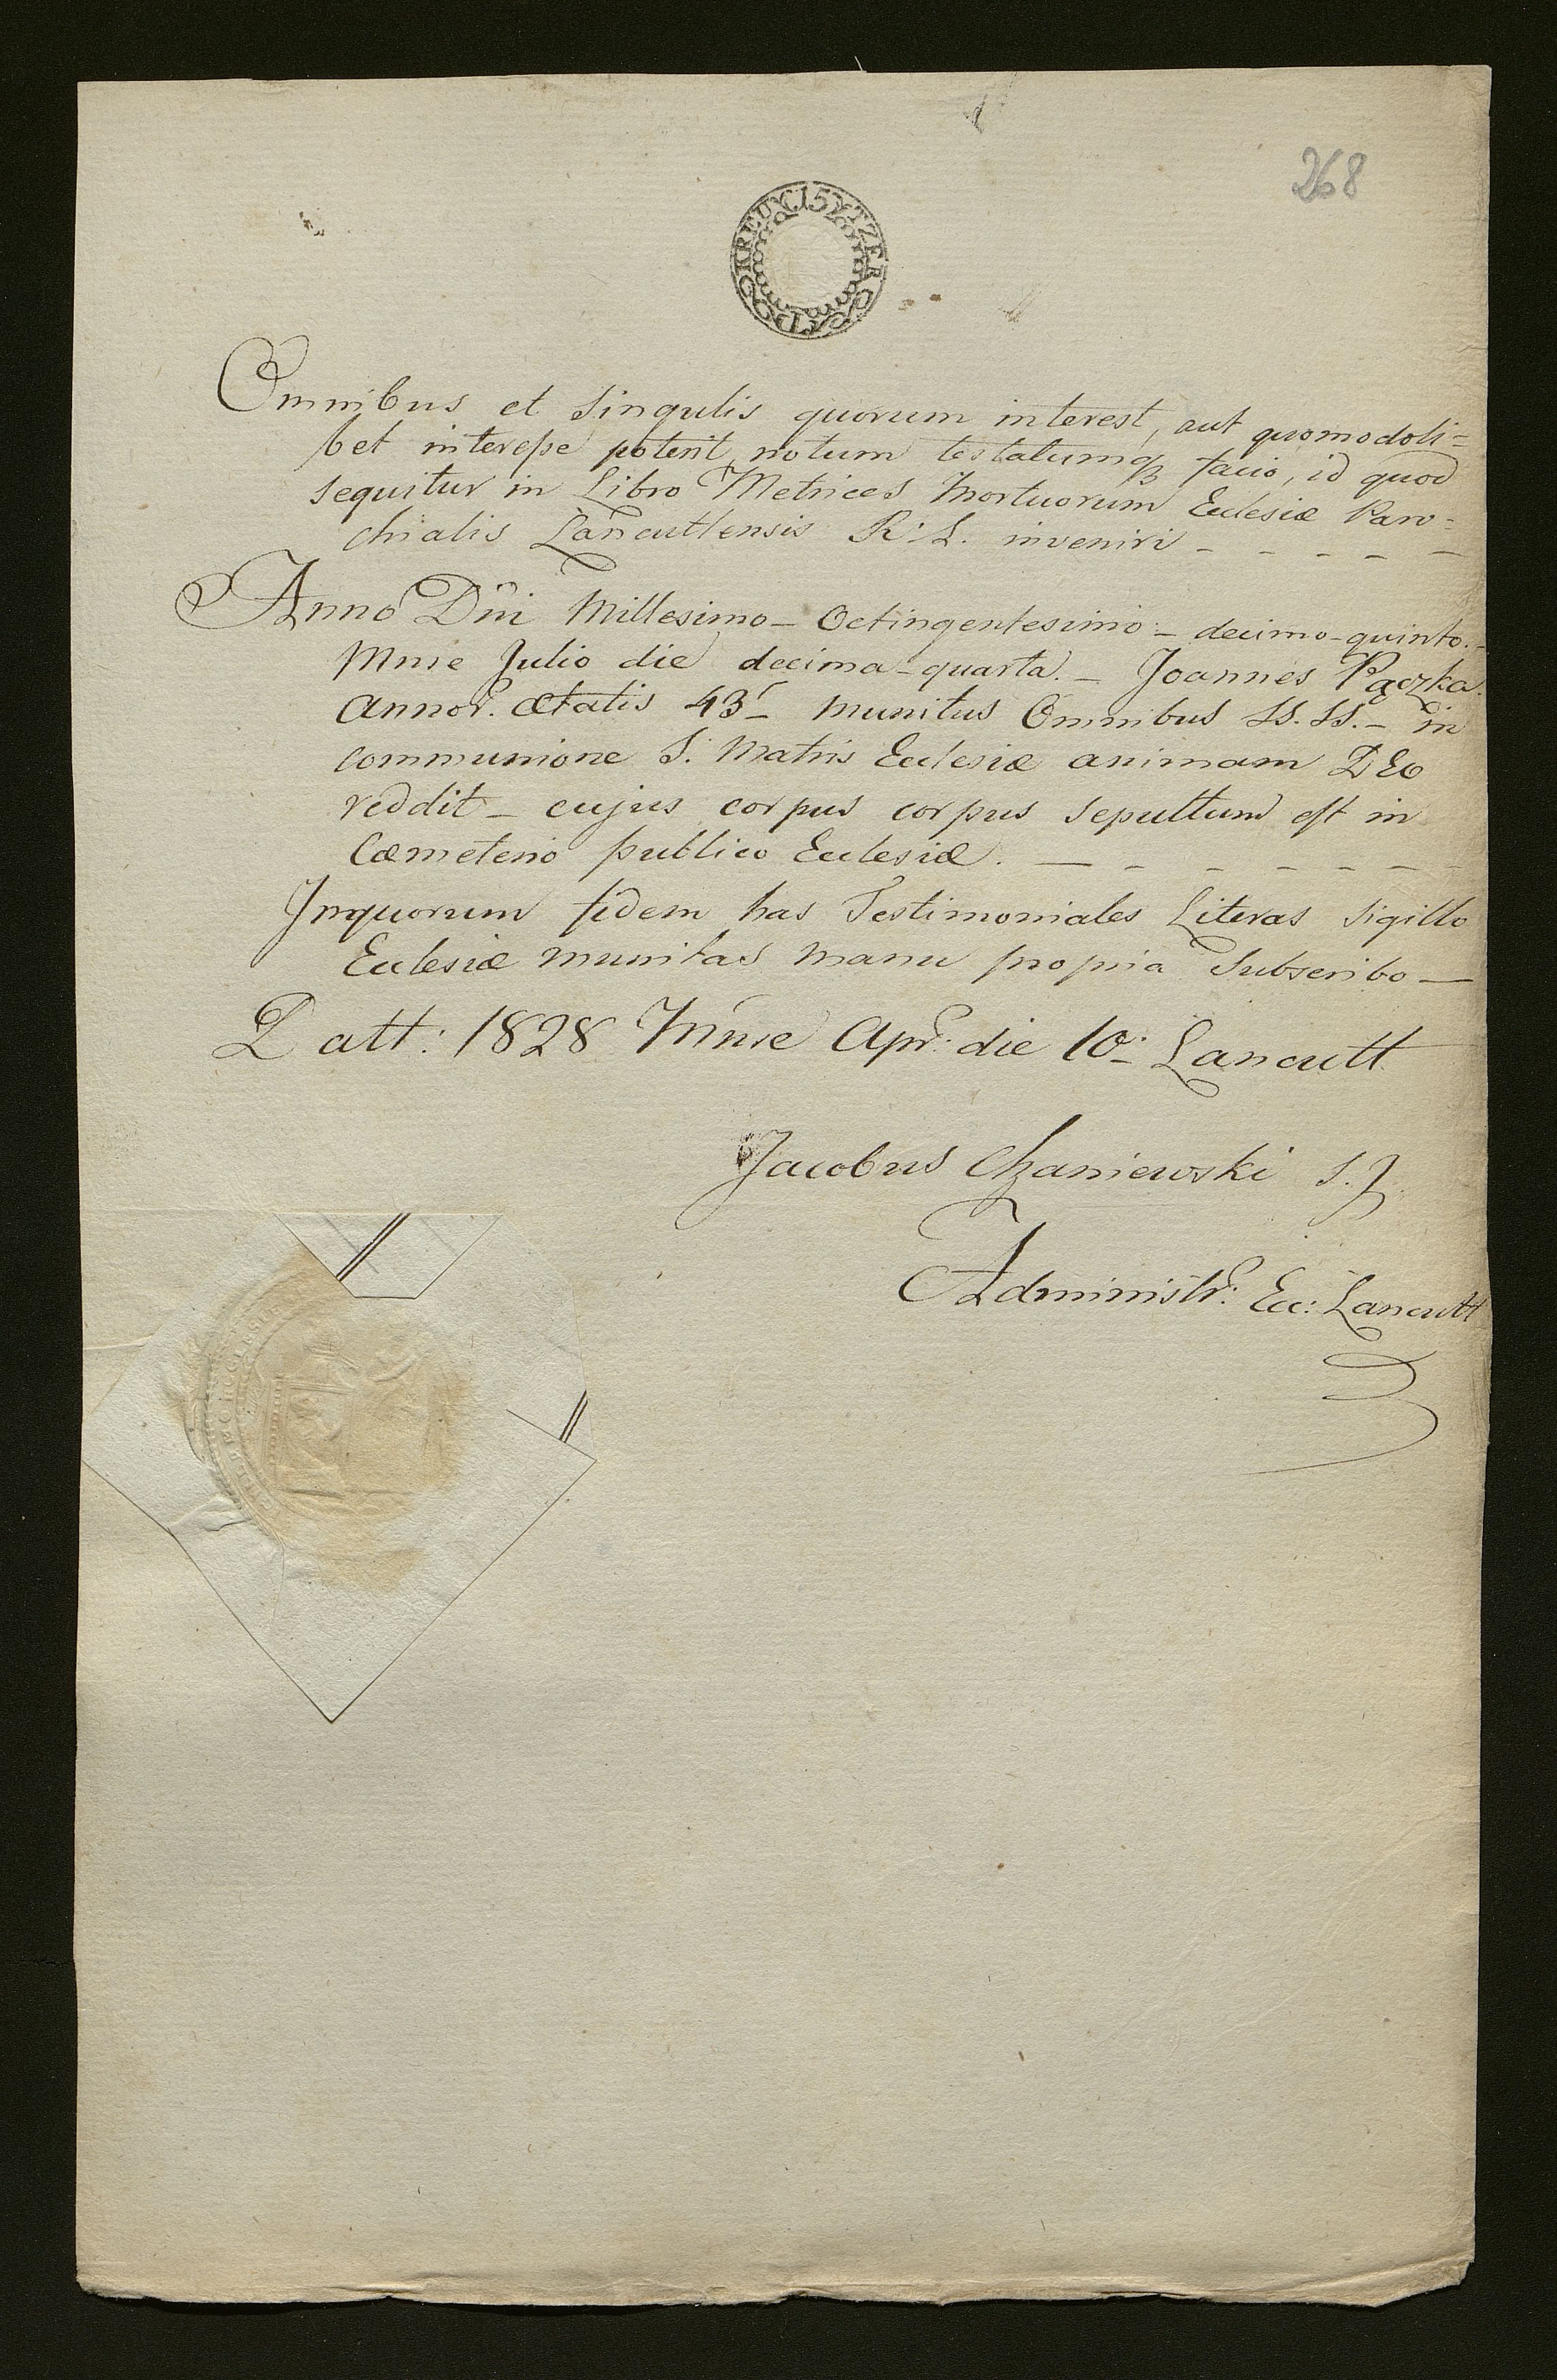 268
15 KREUTZER
Omnibus et Singulis quorum interest, aut quomodoli=
bet interesse poterit, notum testatumq facio, id quod
sequitur in Libro Metrices Mortuorum Eclesiæ Paro=
chialis Lancuttensis R: L. inveniri - - - - -
Anno Dni Millesimo - Octingentesimo - decimo - quinto. -
Mnse Julio die decima - quarta. - Joannes Pączka.
Annor. ætatis 43 - munitus Omnibus SS. SS. - in
communione S. Matris Eclesiæ animam DEO
reddit - cujus corpus corpus sepultum est in
Cæmeterio publico Eclesiæ. - - - - - -
Inquorum fidem has Testimoniales Literas Sigillo
Eclesiæ munitas manu propria Subscribo -
Datt: 1828 Mnse Apr: die 10: Lancutt
Jacobus Chaniewski
Administr: Ecc: Lancutt